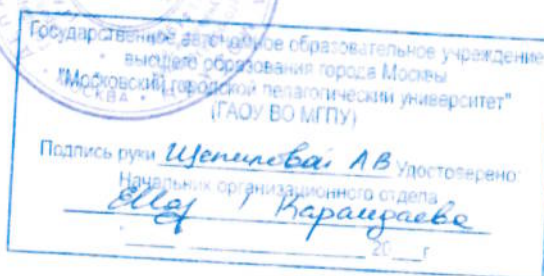 МОСКВА
Государственное автономное образовательное учреждение
высшего образования города Москвы
"Московский городской педагогический университет"
(ГАОУ ВО МГПУ)
Подпись руки Щепиловой АВ Удостоверено:
Начальник организационного отдела
/ Карандаева
20 г